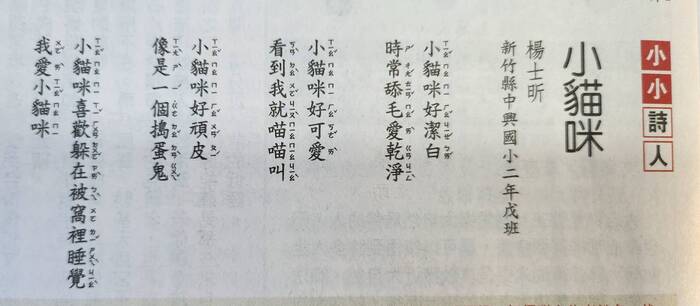 小小詩人
小貓咪
楊士昕
新竹縣中興國小二年戊班
小貓咪好潔白
時常舔毛愛乾淨
小貓咪好可愛
看到我就喵喵叫
小貓咪好頑皮
像是一個搗蛋鬼
小貓咪喜歡躲在被窩裡睡覺
我愛小貓咪